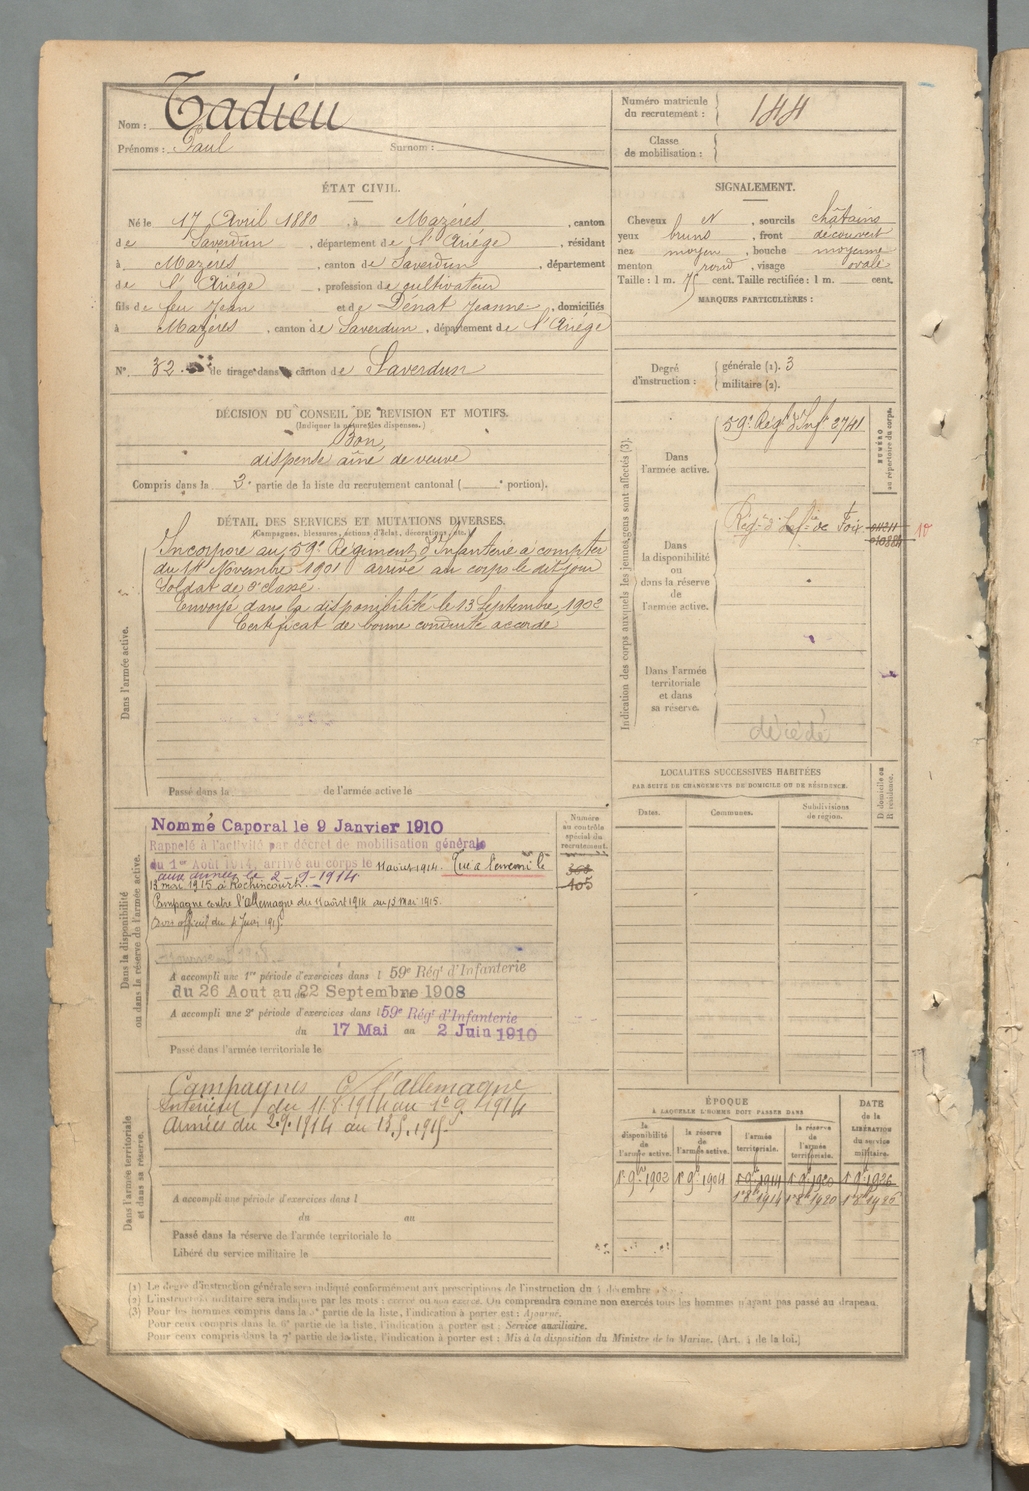 Nom : Tadieu
Prénoms : Paul Surnom :
Numéro matricule
du recrutement : 144
Classe
de mobilisation :
ÉTAT CIVIL.
Né le 17 Avril 1880, à Mazères, canton
de Saverdun, département de l'Ariège, résidant
à Mazères, canton de Saverdun, département
de l'Ariège, profession de cultivateur
fils de feu Jean et de Dénat Jeanne, domiciliés
à Mazères, canton de Saverdun, département de l'Ariège
N° 32 de tirage dans canton de Saverdun
SIGNALEMENT.
Cheveux et, sourcils châtains
yeux bruns, front découvert
nez moyen, bouche moyenne
menton rond, visage ovale
Taille : 1 m. 75 cent. Taille rectifiée : 1 m. cent.
MARQUES PARTICULIÈRES :
Degré
d'instruction :
générale (1). 3
militaire (2).
DÉCISION DU CONSEIL DE REVISION ET MOTIFS.
(Indiquer la nature des dispenses.)
Bon,
dispensé aîné de veuve
Compris dans la 3e partie de la liste du recrutement cantonal ( e portion).
DÉTAIL DES SERVICES ET MUTATIONS DIVERSES.
(Campagnes, blessures, actions d'éclat, décorations, etc.)
Dans l'armée active.
Incorporé au 59e Régiment d'Infanterie à compter
du 14 Novembre 1901 arrivé au corps le dit jour
Soldat de 2e classe.
Envoyé dans la disponibilité le 13 Septembre 1902
Certificat de bonne conduite accordé
Passé dans la de l'armée active le
Indication des corps auxquels les jeunes gens sont affectés (3).
NUMÉRO
au répertoire du corps.
Dans
l'armée active.
59e Régt d'Inf. 2741
Dans
la disponibilité
ou
dans la réserve
de
l'armée active.
Régt d'Inf. de Foix
10
Dans l'armée
territoriale
et dans
sa réserve.
décédé
LOCALITÉS SUCCESSIVES HABITÉES
PAR SUITE DE CHANGEMENTS DE DOMICILE OU DE RÉSIDENCE.
Dates. Communes. Subdivisions
de région.
D domicile ou
R résidence.
Dans la disponibilité
ou dans la réserve de l'armée active.
Numéro
au contrôle
spécial du
recrutement.
Nommé Caporal le 9 Janvier 1910
Rappelé à l'activité par décret de mobilisation générale
du 1er Août 1914, arrivé au corps le 11 août 1914. Tué à l'ennemi le
aux armées le 2-9-1914
13 mai 1915 à Rochincourt.
Campagne contre l'Allemagne du 11 août 1914 au 13 mai 1915.
Avis officiel du 4 Juin 1915.
105
A accompli une 1re période d'exercices dans l 59e Régt d'Infanterie
du 26 Aout au 22 Septembre 1908
A accompli une 2e période d'exercices dans l 59e Régt d'Infanterie
du 17 Mai au 2 Juin 1910
Passé dans l'armée territoriale le
Dans l'armée territoriale
et dans sa réserve.
Campagnes C/ l'allemagne
Intérieur du 11.8.1914 au 1er 9 1914
Armées du 2.9.1914 au 13.5.1915
A accompli une période d'exercices dans l
du au
Passé dans la réserve de l'armée territoriale le
Libéré du service militaire le
ÉPOQUE
À LAQUELLE L'HOMME DOIT PASSER DANS
DATE
de la
LIBÉRATION
du service
militaire.
la
disponibilité
de
l'armée active.
la réserve
de
l'armée active.
l'armée
territoriale.
la réserve
de
l'armée
territoriale.
1er 9bre 1902 1er 9bre 1904 1er 9bre 1914 1er 9bre 1920 1er 9bre 1926
1er 8bre 1914 1er 8bre 1920 1er 8bre 1926
(1) Le degré d'instruction générale sera indiqué conformément aux prescriptions de l'instruction du décembre
(2) L'instruction militaire sera indiquée par les mots : exercé ou non exercé. On comprendra comme non exercés tous les hommes n'ayant pas passé au drapeau.
(3) Pour les hommes compris dans la partie de la liste, l'indication à porter est : Ajourné.
Pour ceux compris dans la 6e partie de la liste, l'indication à porter est : Service auxiliaire.
Pour ceux compris dans la 7e partie de la liste, l'indication à porter est : Mis à la disposition du Ministre de la Marine. (Art. 4 de la loi.)